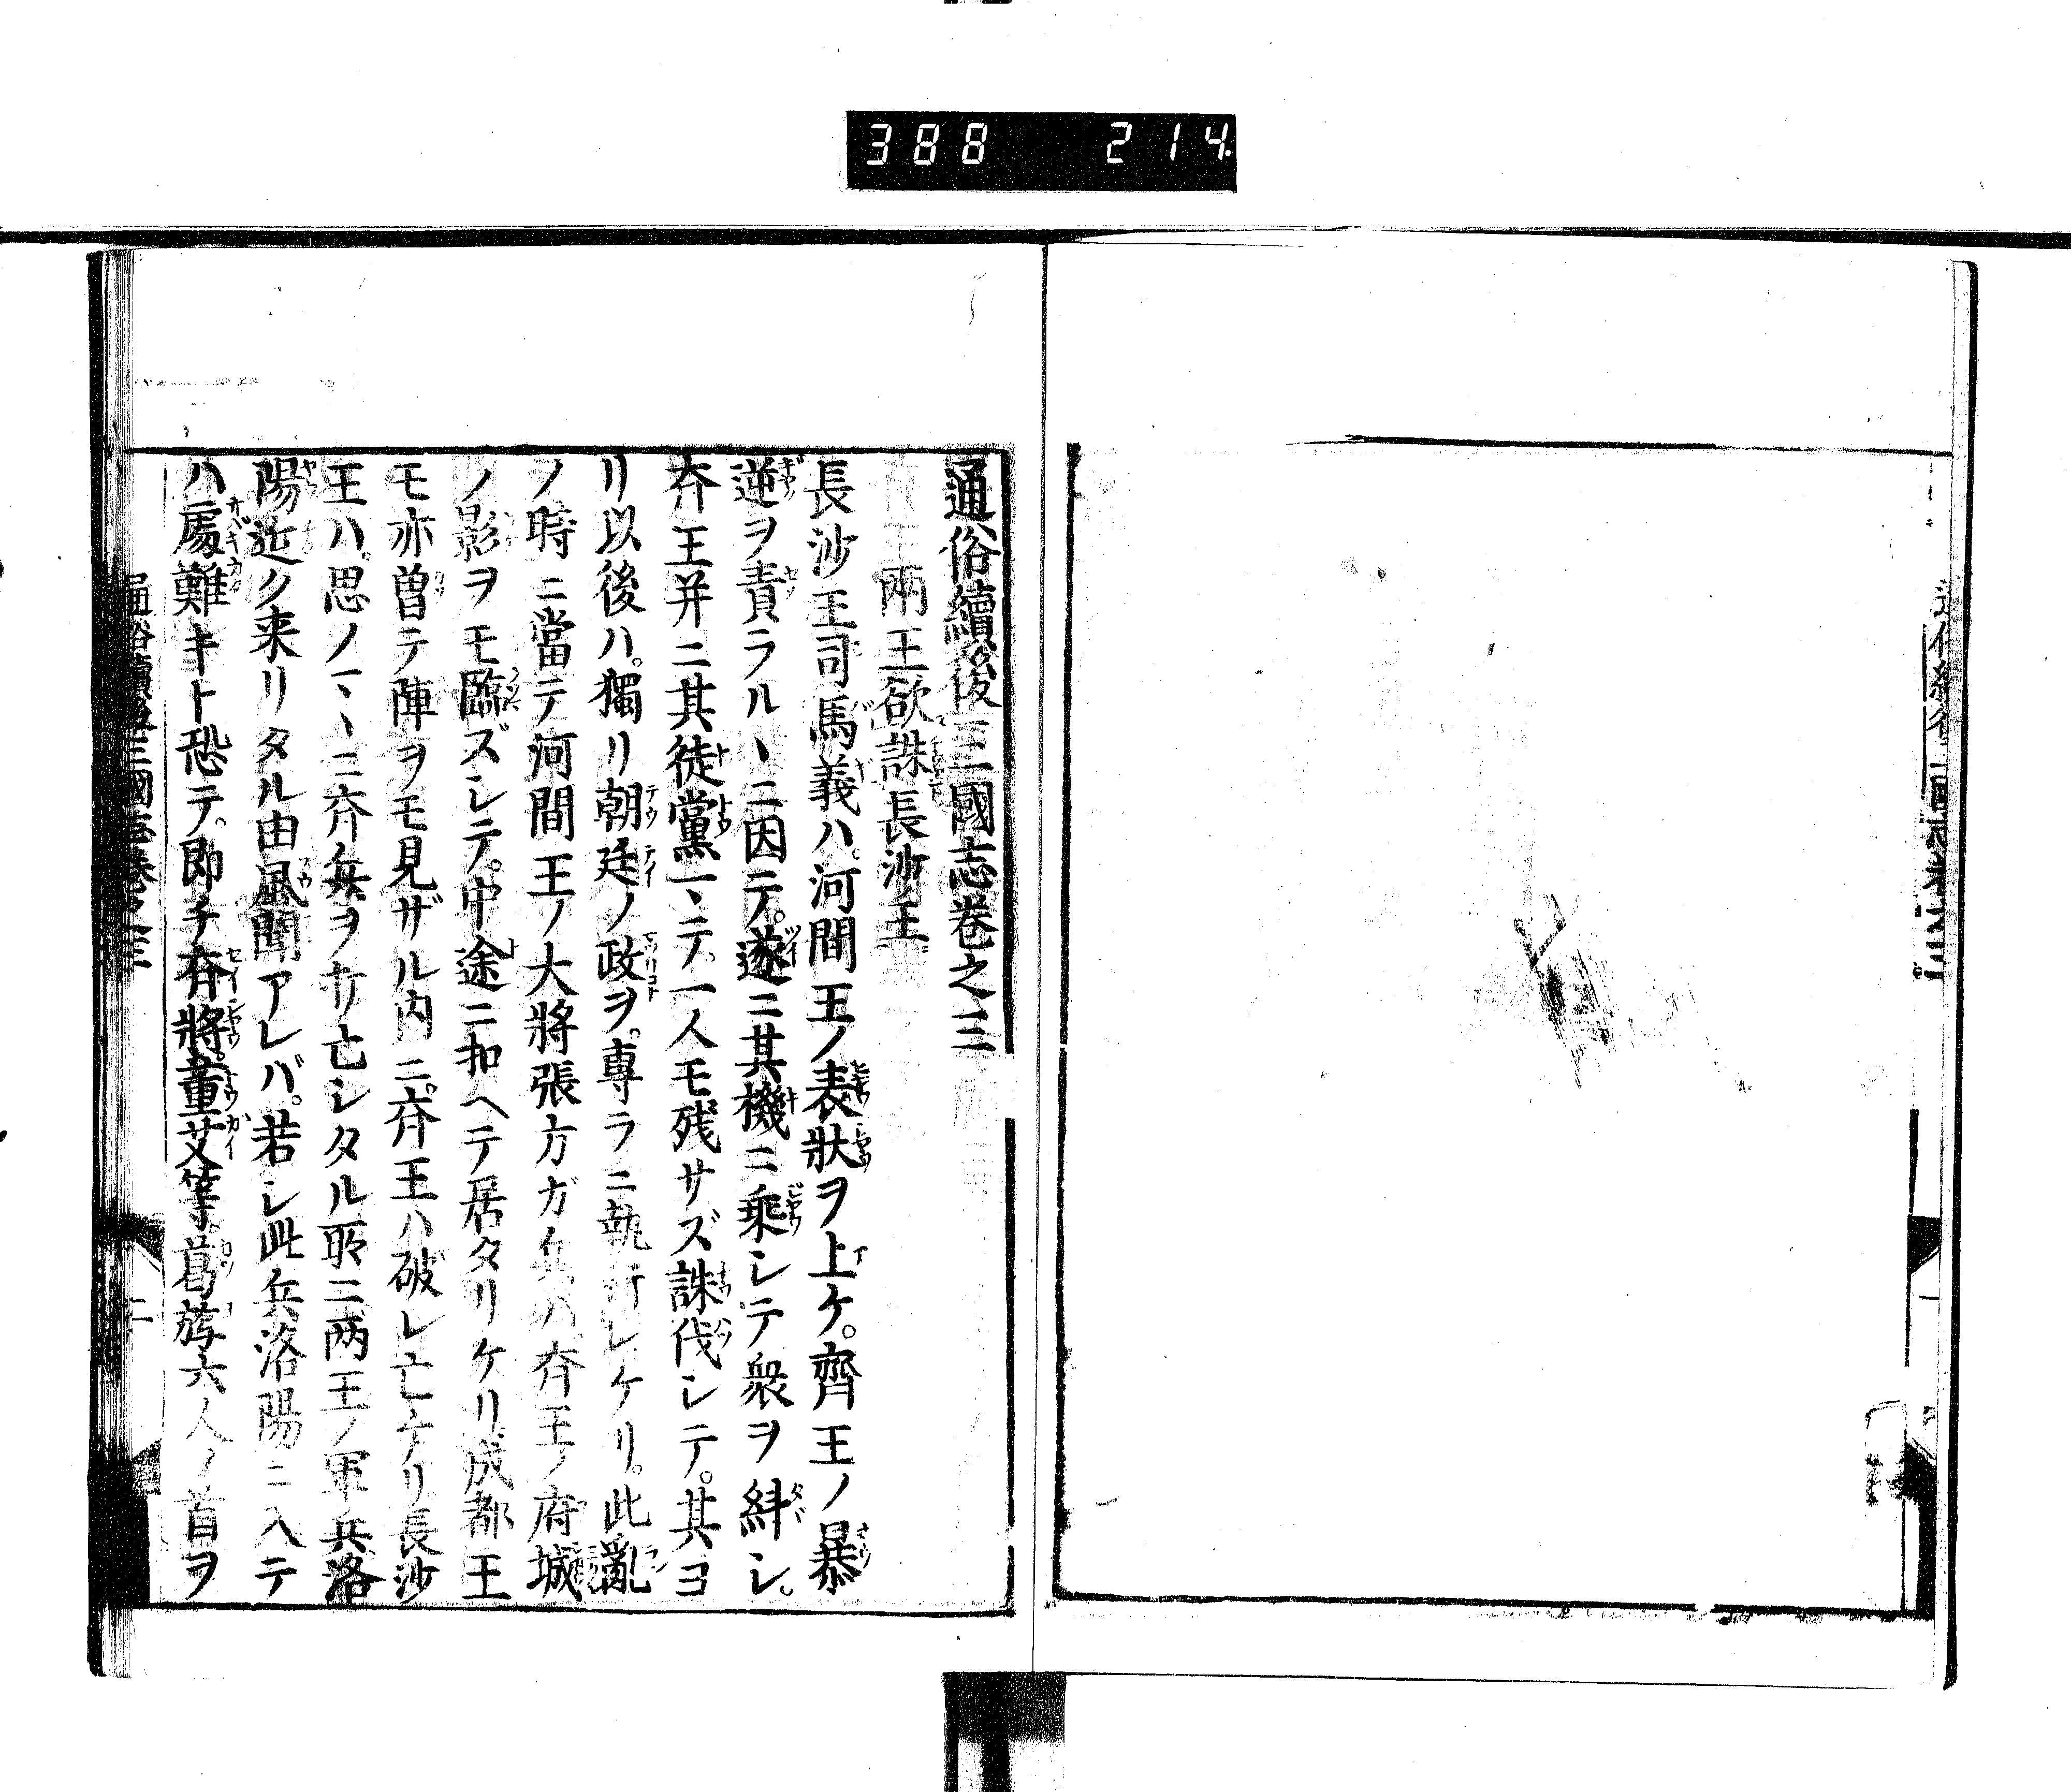 388 214
通俗續後三國志卷之三
兩王欲誅長沙王
長沙王司馬義ハ。河間王ノ表狀ヲ上ケ。齊王ノ暴
逆ヲ責ラルヽニ因テ。遂ニ其機ニ乗シテ衆ヲ縡シ。
斉王并ニ其徒黨一ヽテ。一人モ残サズ誅伐シテ。其ヨ
リ以後ハ。獨リ朝廷ノ政ヲ。專ラニ執行シケリ。此亂
ノ時ニ當テ河間王ノ大將張方ガ兵ハ斉王ノ府城
ノ影ヲモ臨ズシテ。中途ニ扣ヘテ居タリケリ。成都王
モ亦曽テ陣ヲモ見ザル内ニ。斉王ハ破レ亡ケリ長沙
王ハ。思ノマヽニ斉兵ヲ亡シタル所ニ両王ノ軍兵洛
陽近ク来リタル由風聞アレバ。若シ此兵洛陽ニ入テ
ハ處難キト恐テ。即チ斉將董艾等。葛旟六人ノ首ヲ
通俗續後三國志卷之三